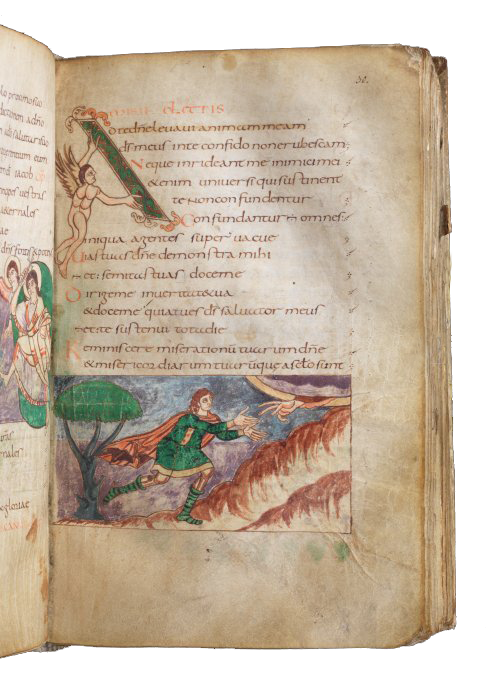 lo proximo suo
eum
iacob
uestras
rnales
rnales
gloriae
30.
ELECTIS
Ad te dne leuaui animam meam
ds meus in te confido non erubescam
Neque inrideant me inimici mei
&enim uniuersi qui sustinent
te non confundentur
Confundantur & omnes
iniqua agentes super uacue
Uias tuas dne demonstra mihi
& semitas tuas doce me
Dirige me in ueritate tua
& doce me quia tu es ds saluator meus
& te sustenui tota die
Reminiscere miserationu tuarum dne
& misericordiarum tuarum que a seclo sunt